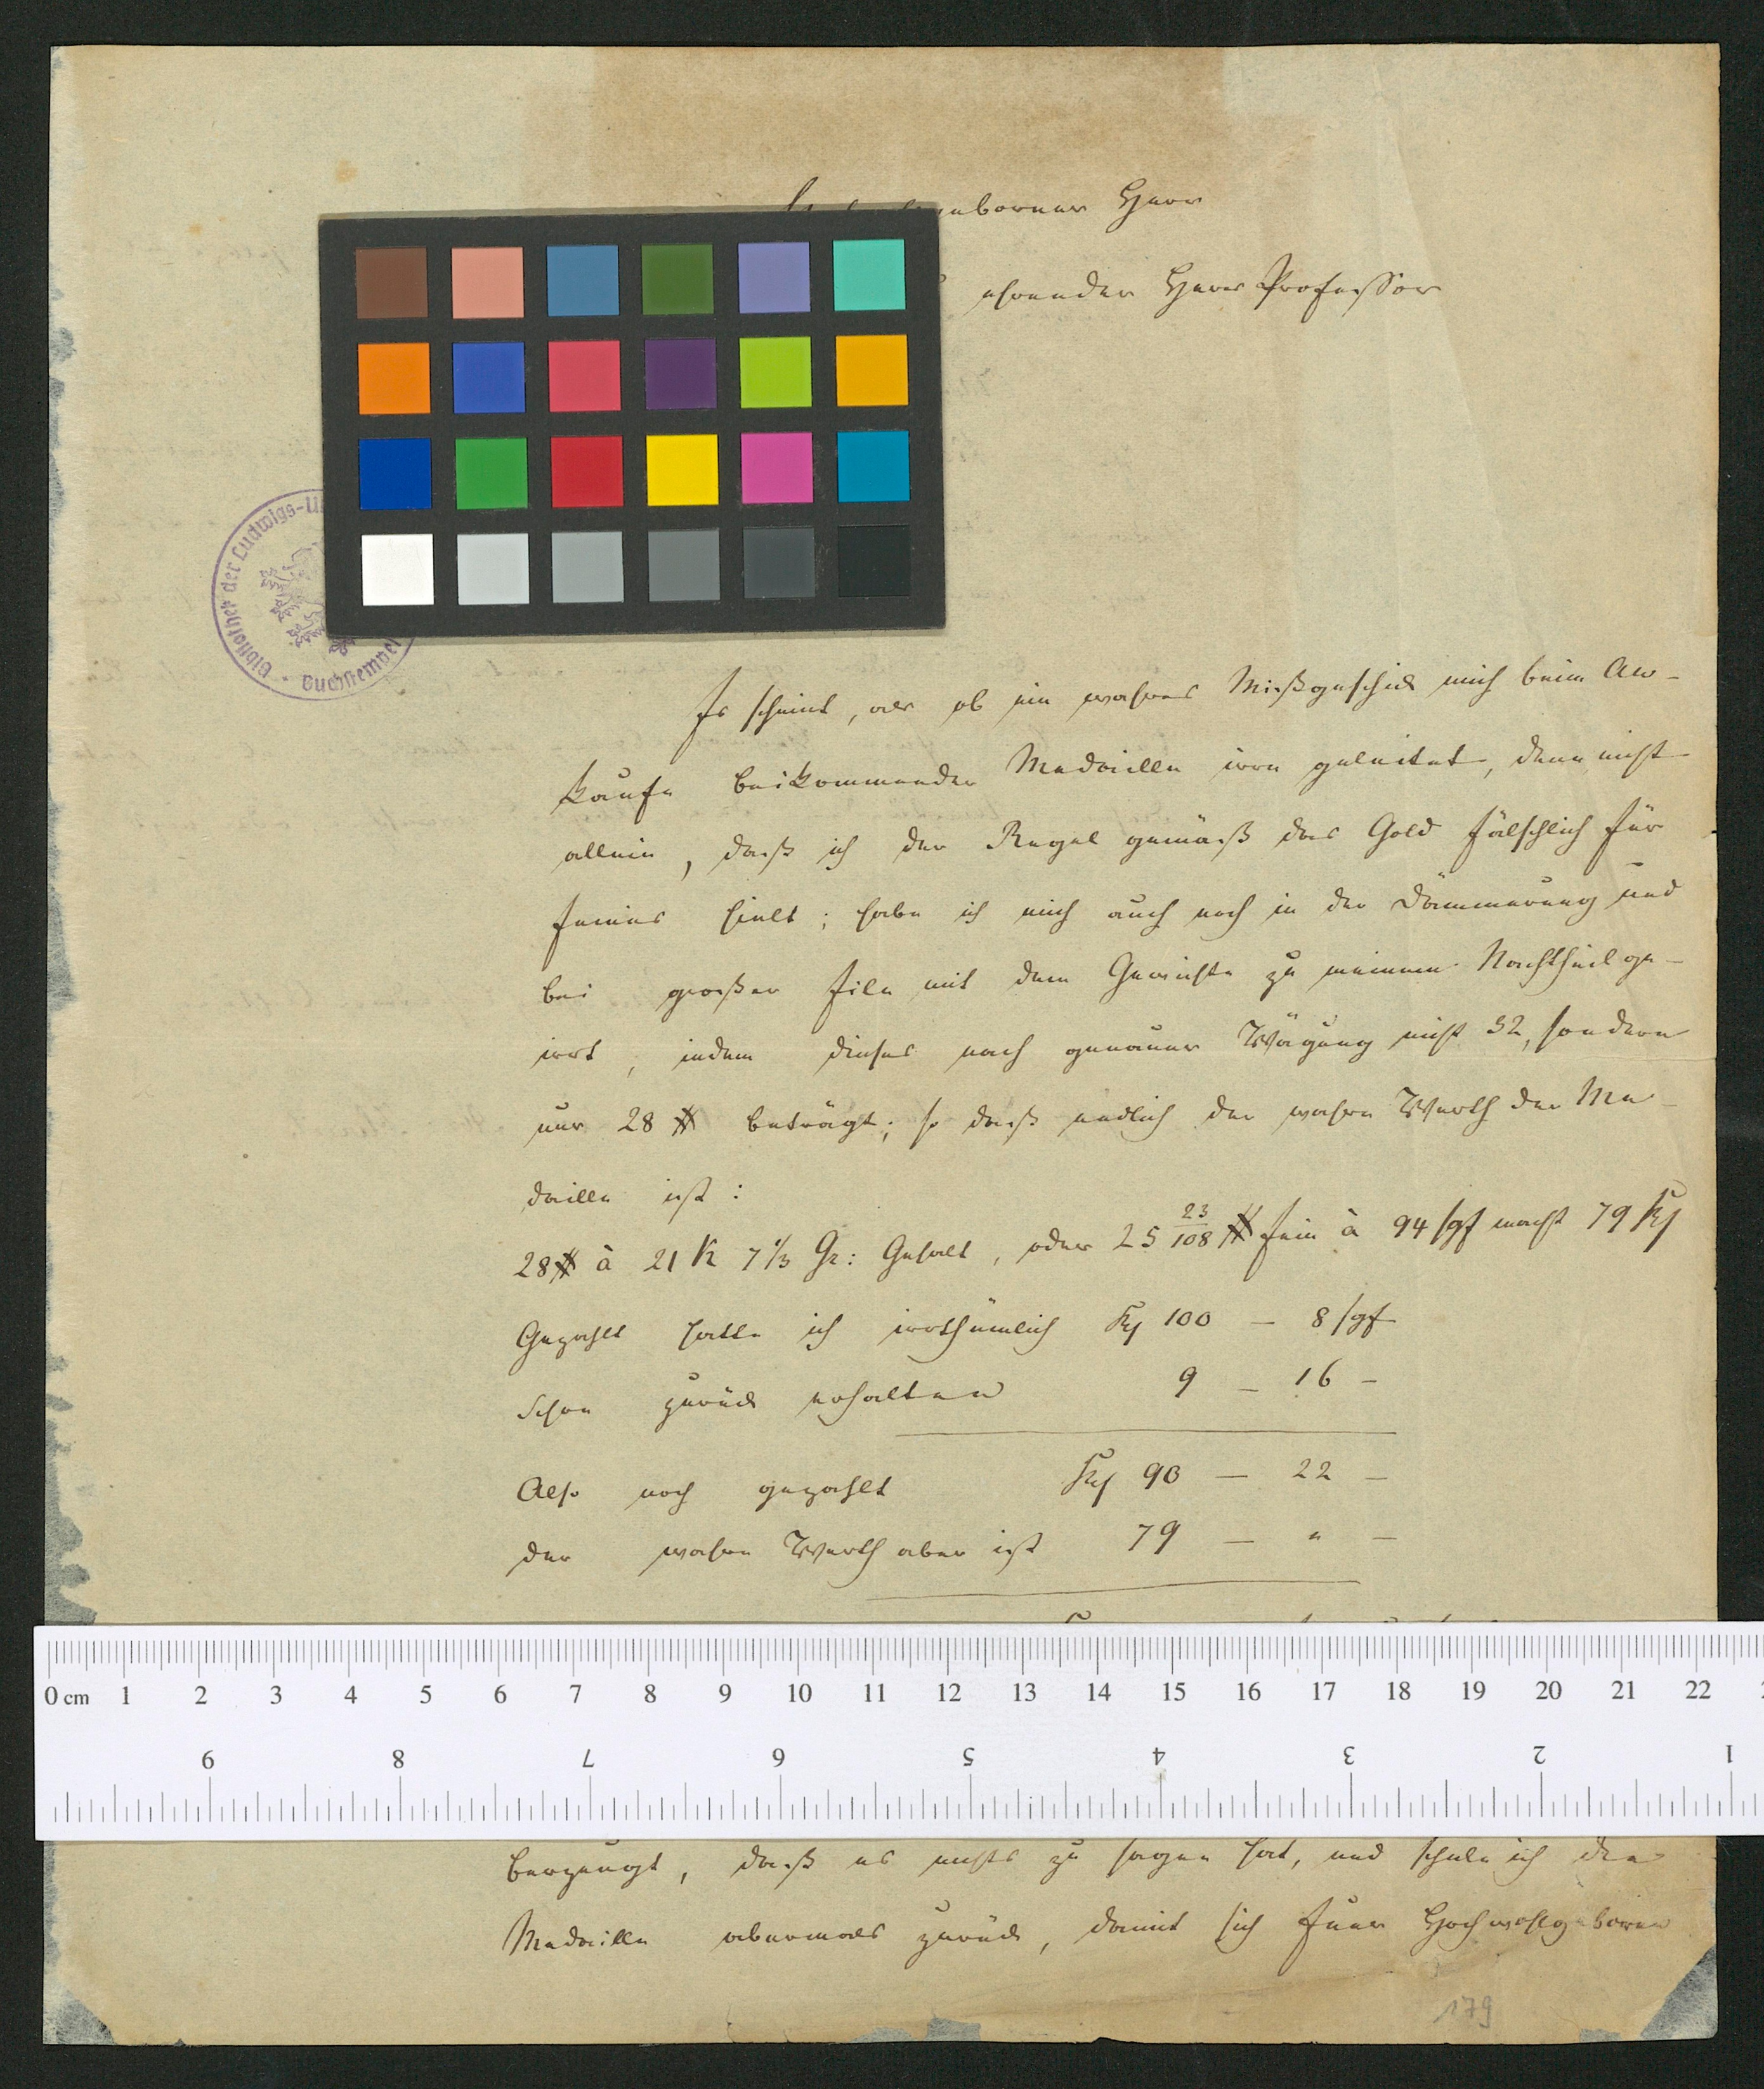 geborner Herr
ehrender Herr Professor
Bibliothek der Ludwigs-U
Buchstempel
Es scheint, als ob ein wahres Mißgeschick mich beim An-
kaufe beikommender Medaille irre geleitet, denn nicht
allein, daß ich der Regel gemäß das Gold fälschlich für
feines hielt; habe ich mich auch noch in der Dämmerung und
bei großer Eile mit dem Gewichte zu meinem Nachtheil ge-
irrt, indem dieses nach genauer Wägung nicht 32, sondern
nur 28 # beträgt; so daß endlich der wahre Werth der Me-
daille ist:
28 # à 21 K 7 1/3 Gr: Gehalt, oder 25 23/108 # fein à 94 sgr macht 79 Rth
Gezahlt hatte ich irrthümlich Rth 100 — 8 sgr
Schon zurück erhalten 9 — 16 —
Also noch gezahlt Rth 90 — 22 —
der wahre Werth aber ist 79 — " —
0 cm 1 2 3 4 5 6 7 8 9 10 11 12 13 14 15 16 17 18 19 20 21 22
9 8 7 6 5 4 3 2 1
berzeugt, daß es nichts zu sagen hat, und schicke ich die
Medaille abermals zurück, damit sich Euer Hochwohlgeboren
179